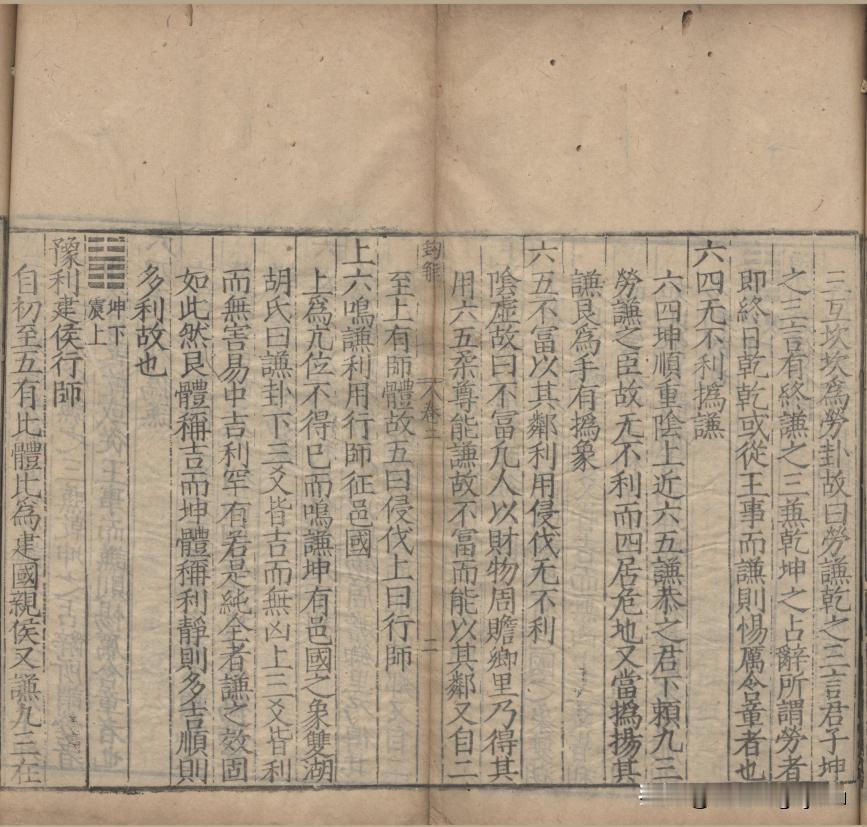 三互坎坎爲勞卦故曰勞謙乾之三言君子坤
之三言有終謙之三兼乾坤之占辭所謂勞者
即終日乾乾或從王事而謙則惕厲含章者也
六四无不利撝謙
六四坤順重陰上近六五謙恭之君下賴九三
勞謙之臣故无不利而四居危地又當撝揚其
謙艮爲手有撝象
六五不富以其鄰利用侵伐无不利
陰虛故曰不富凡人以財物周贍鄉里乃得其
用六五柔尊能謙故不富而能以其鄰又自二
卷二
二
至上有師體故五曰侵伐上曰行師
上六鳴謙利用行師征邑國
上爲亢位不得已而鳴謙坤有邑國之象雙湖
胡氏曰謙卦下三爻皆吉而無凶上三爻皆利
而無害易中吉利罕有若是純全者謙之效固
如此然艮體稱吉而坤體稱利靜則多吉順則
多利故也
坤下
震上
豫利建侯行師
自初至五有比體比爲建國親侯又謙九三在